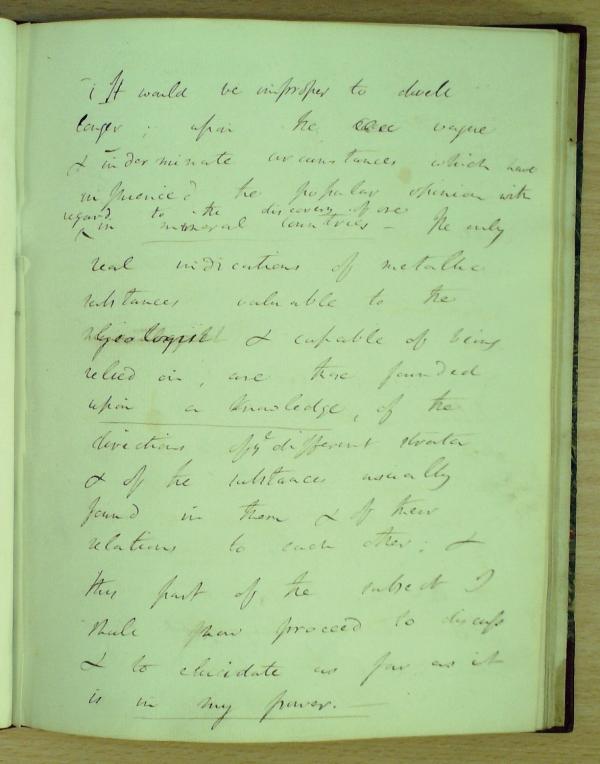 It would be improper to dwell
longer; upon the vague
& indeterminate circumstances which have
influenced the popular opinion with
regard to the discovery of ore
in mineral countries - The only
real indications of metallic
substances valuable to the
Geologist & capable of being
relied on, are those founded
upon a knowledge, of the
directions of ye different strata
& of the substances usually
found in them & of their
relations to each other; &
this part of the subject I
shall now proceed to discuss
& to elucidate as far as it
is in my power. -